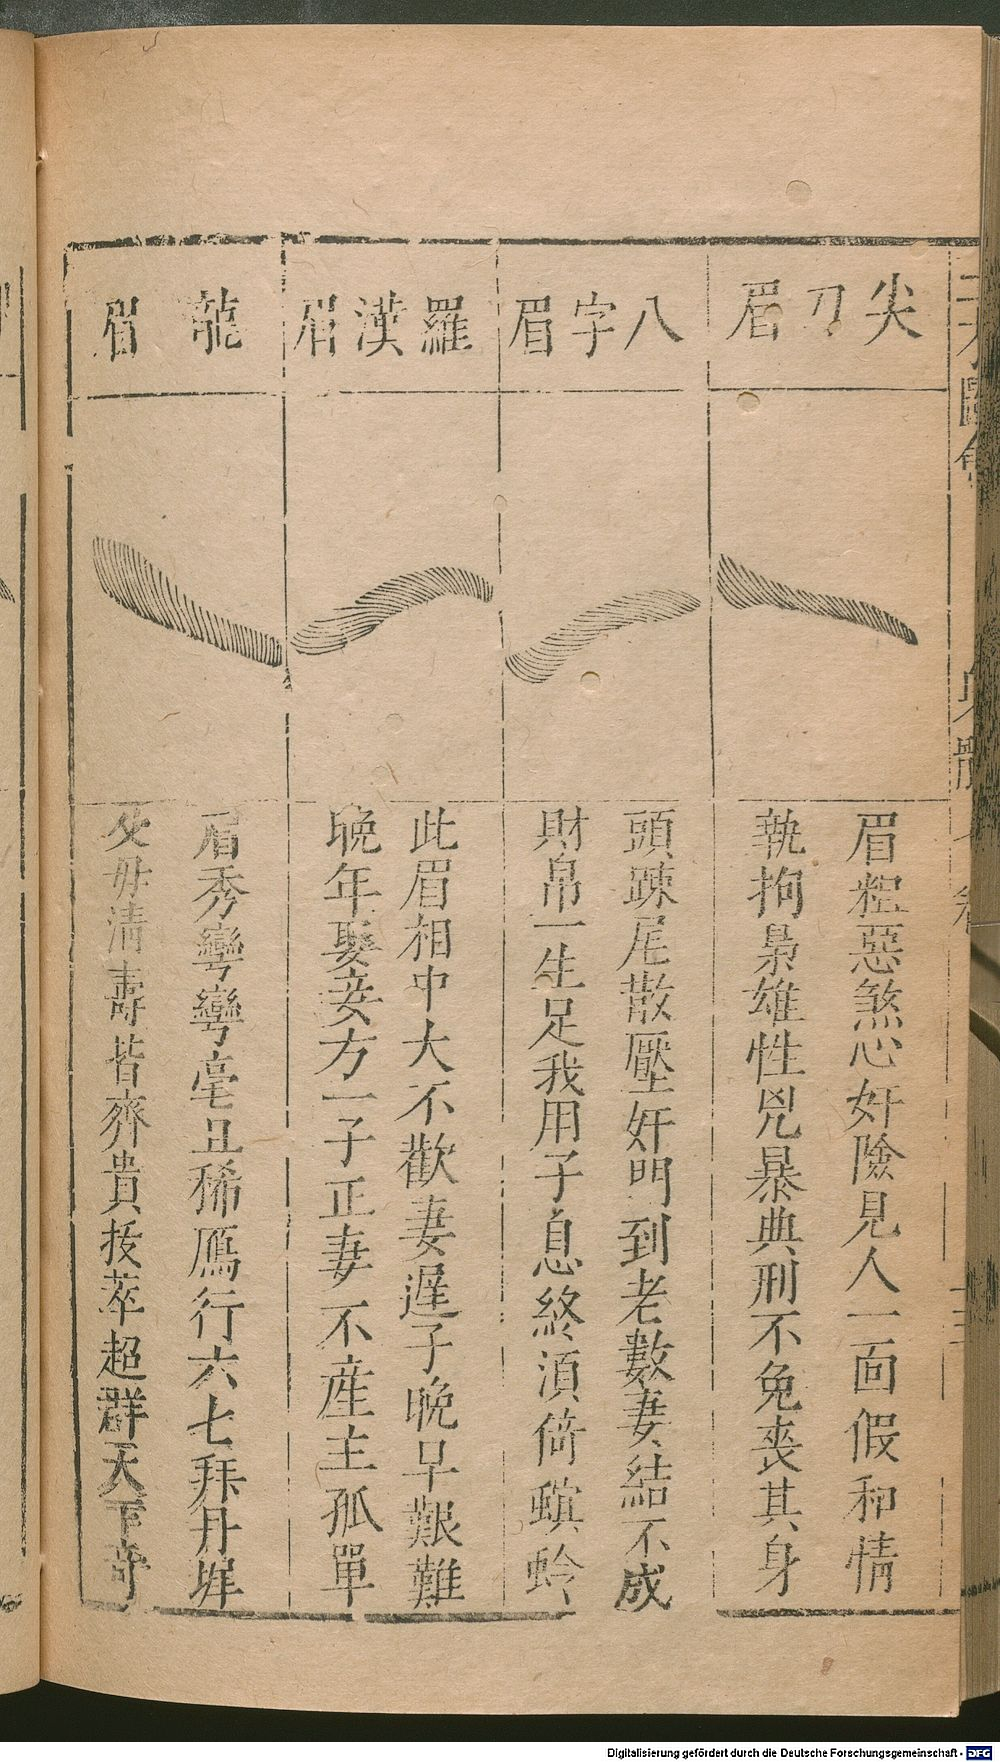 尖刀眉
眉粗惡煞心奸險見人一面假和情
執拘梟雄性兇暴典刑不免喪其身
八字眉
頭踈尾散壓奸門到老數妻結不成
財帛一生足我用子息終須倚螟蛉
羅漢眉
此眉相中大不歡妻遲子晚早艱難
晚年娶妾方一子正妻不産主孤單
龍眉
眉秀彎彎毫且稀鴈行六七拜丹墀
父毋清壽皆齊貴拔萃超群天下奇
Digitalisierung gefördert durch die Deutsche Forschungsgemeinschaft - DFG